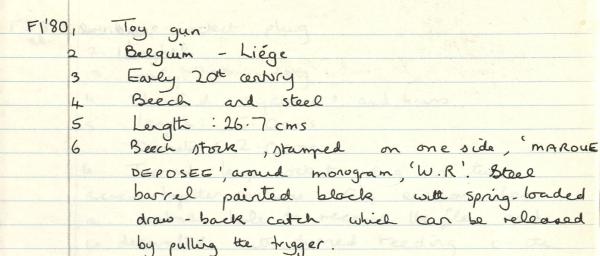 F1'80, Toy gun
2 Belguim - Liége
3 Early 20th century
4 Beech and steel
5 Length : 26.7 cms
6 Beech stock, stamped on one side, 'MARQUE
DEPOSEE', around monogram, 'W.R'. Steel
barrel painted black with spring-loaded
draw-back catch which can be released
by pulling the trigger.